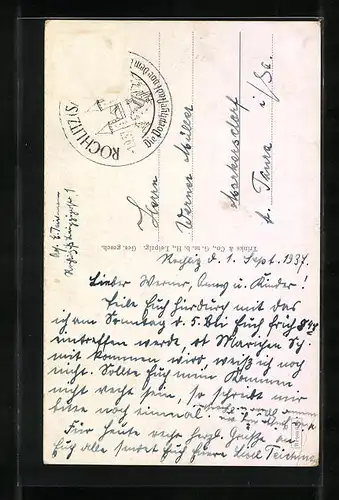 ROCHLITZ (SA)
Die Porphyrstadt
Herrn
Werner Müller
Markersdorf
b. Taura i/Sa.
Trinks & Co., G. m. b. H., Leipzig. Ges. gesch.
Rochlitz d. 1. Sept. 1937.
Lieber Werner, u. Kinder!
Teile Euch hierdurch mit das
ich am Sonntag d. 5. bei Euch früh
eintreffen werde ob Mariechen Sch.
mit kommen wird weiß ich noch
nicht. Sollte Euch mein Kommen
nicht recht sein, so schreibt mir
bitte noch einmal
Für heute recht herzl. Grüße an
Euch alle sendet Euch Eure